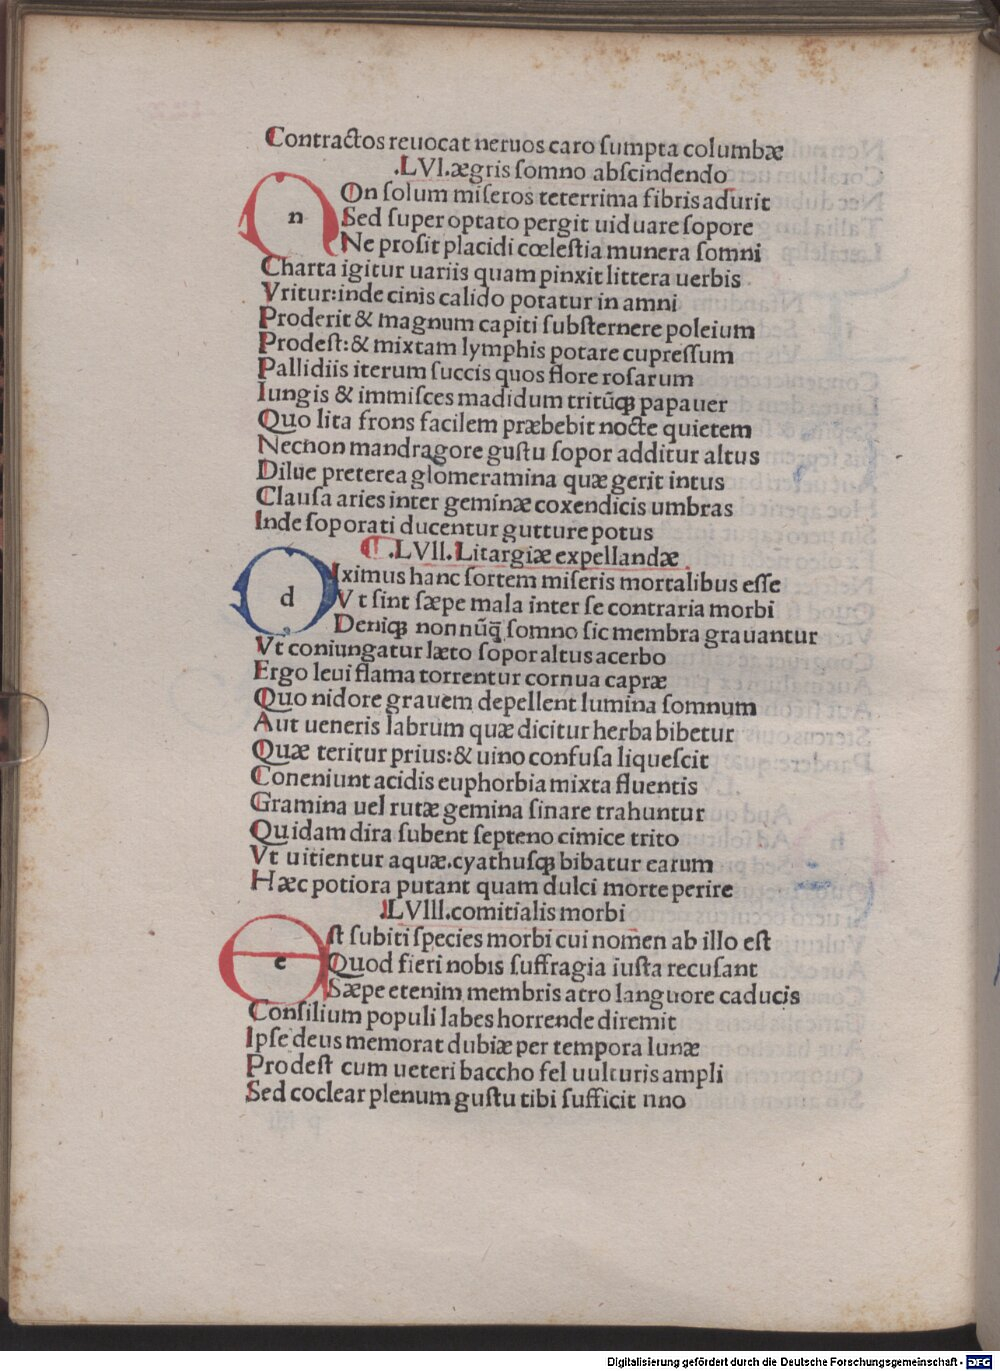 Contractos reuocat neruos caro sumpta columbæ
.LVI.ægris somno abscindendo
nOn solum miseros teterrima fibris adurit
Sed super optato pergit uiduare sopore
Ne prosit placidi cœlestia munera somni
Charta igitur uariis quam pinxit littera uerbis
Vritur:inde cinis calido potatur in amni
Proderit & magnum capiti substernere poleium
Prodest:& mixtam lymphis potare cupressum
Pallidiis iterum succis quos flore rosarum
Iungis & immisces madidum tritūqꝫ papauer
Quo lita frons facilem præbebit nocte quietem
Necnon mandragore gustu sopor additur altus
Dilue preterea glomeramina quæ gerit intus
Clausa aries inter geminæ coxendicis umbras
Inde soporati ducentur gutture potus
.LVII.Litargiæ expellandæ
dIximus hanc sortem miseris mortalibus esse
Vt sint sæpe mala inter se contraria morbi
Deniqꝫ nonnūq̄ somno sic membra grauantur
Vt coniungatur læto sopor altus acerbo
Ergo leui flama torrentur cornua capræ
Quo nidore grauem depellent lumina somnum
Aut ueneris labrum quæ dicitur herba bibetur
Quæ teritur prius:& uino confusa liquescit
Coneniunt acidis euphorbia mixta fluentis
Gramina uel rutæ gemina sinare trahuntur
Quidam dira subent septeno cimice trito
Vt uitientur aquæ.cyathusqꝫ bibatur earum
Hæc potiora putant quam dulci morte perire
.LVIII.comitialis morbi
eSt subiti species morbi cui nomen ab illo est
Quod fieri nobis suffragia iusta recusant
Sæpe etenim membris atro languore caducis
Consilium populi labes horrende diremit
Ipse deus memorat dubiæ per tempora lunæ
Prodest cum ueteri baccho fel uulturis ampli
Sed coclear plenum gustu tibi sufficit nno
Digitalisierung gefördert durch die Deutsche Forschungsgemeinschaft - DFG